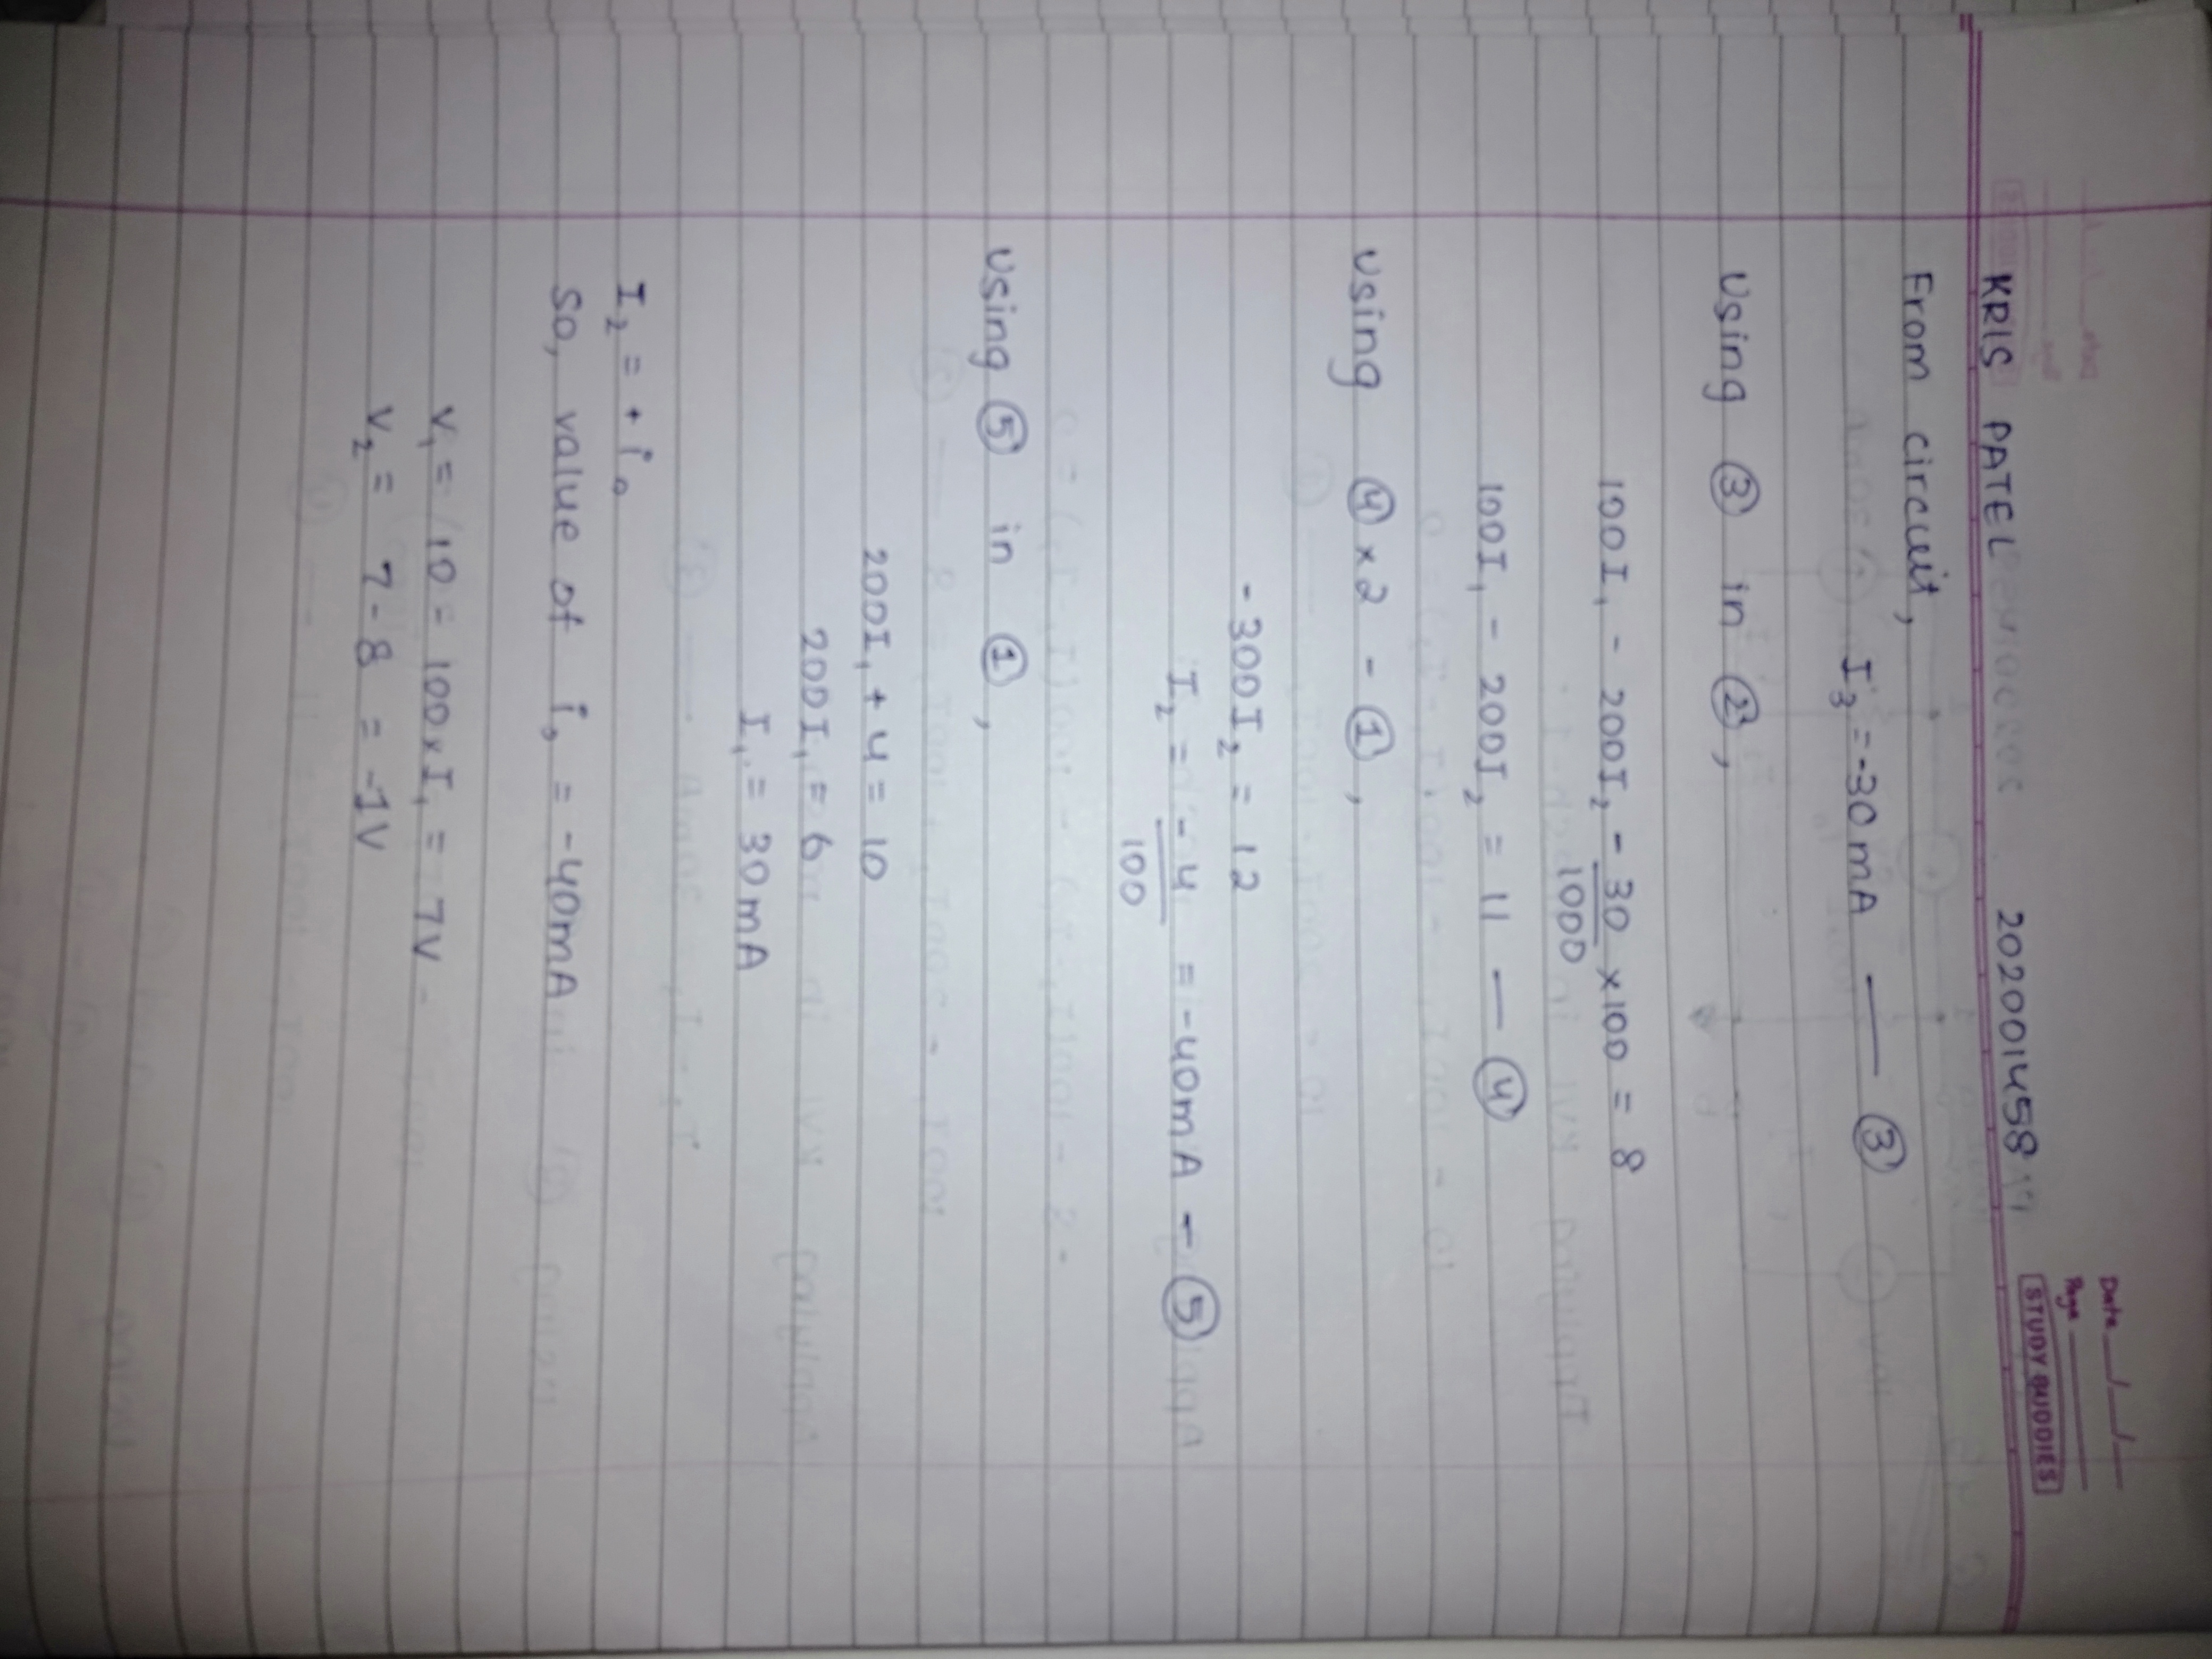 Date __/__/__
Page ______
STUDY BUDDIES
KRIS PATEL 202001458
From circuit,
I₃ = -30 mA — ③
Using ③ in ②,
100I₁ - 200I₂ - 30/1000 × 100 = 8
100I₁ - 200I₂ = 11 — ④
Using ④ × 2 - ①,
-300I₂ = 12
I₂ = -4/100 = -40mA — ⑤
Using ⑤ in ①,
200I₁ + 4 = 10
200I₁ = 6
I₁ = 30mA
I₂ = + i₀
So, value of i₀ = -40mA
V₁ = 10 - 100×I₁ = 7V
V₂ = 7-8 = -1V